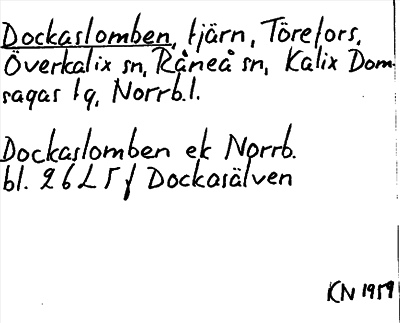 Dockaslomben, tjärn, Törefors,
Överkalix sn, Råneå sn, Kalix Dom-
sagas tg, Norrb.l.
Dockaslomben ek Norrb.
bl. 26L5f Dockasälven
KN 1959